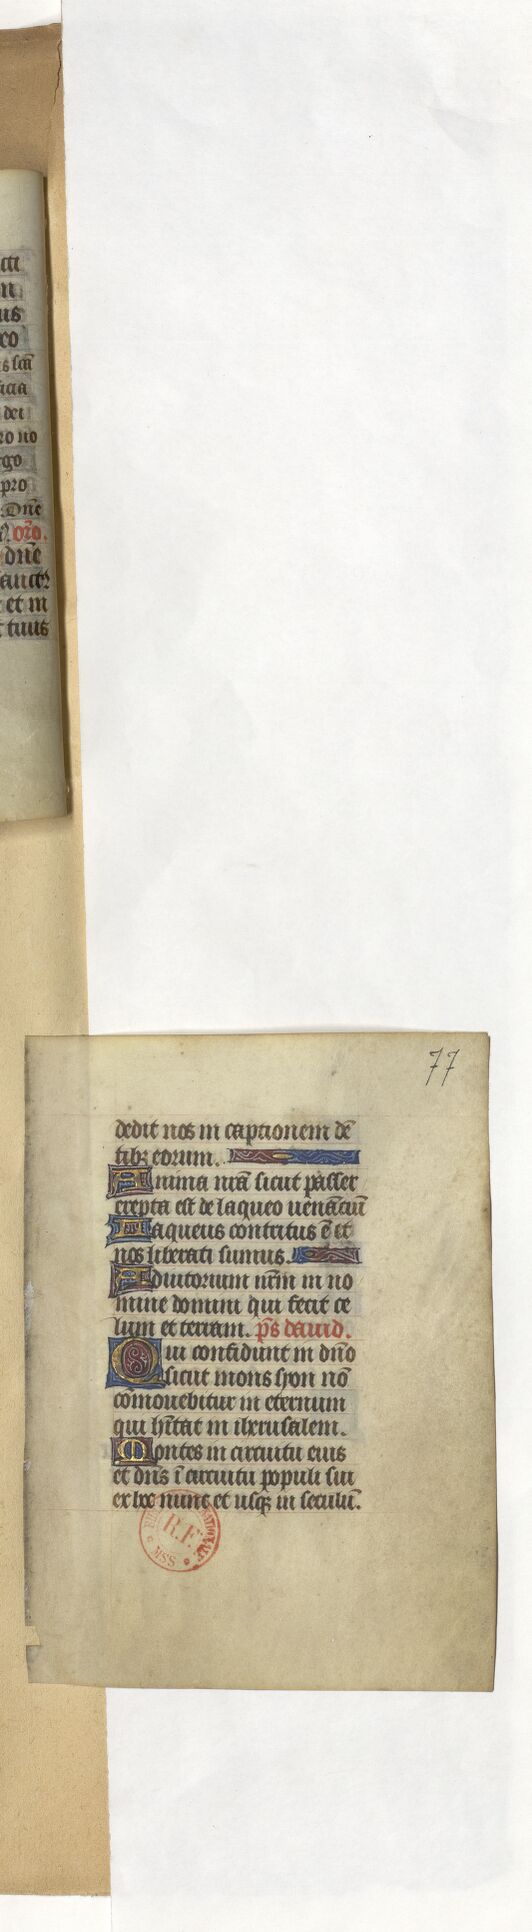 cti
n
us
eo
s scī
icia
dei
ro no
go
pro
Dn̄e
oro.
dn̄e
sanct
et in
tuus
77
dedit nos in captionem dē
tibꝫ eorum.
Anima nr̄a sicut passer
erepta est de laqueo uenāciū
Laqueus contritus ē et
nos liberati sumus.
Adiutorium nr̄m in no
mine domini qui fecit ce
lum et terram. p̄s dauid.
Qui confidunt in dn̄o
sicut mons syon nō
cōmouebitur in eternum
qui hītat in iherusalem.
Montes in circuitu eius
et dn̄s ī circuitu populi sui
ex hoc nunc et usqꝫ in seculū.
R.F.
MSS